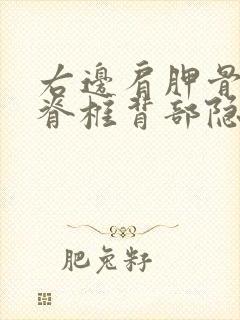 右邊肩胛骨
脊椎背部隐
肥兔籽